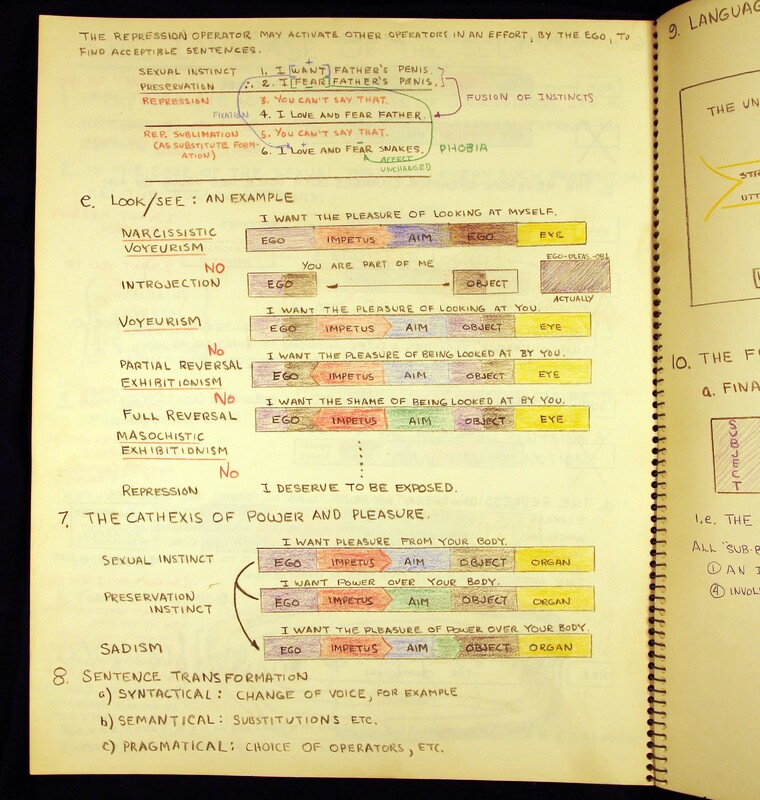 THE REPRESSION OPERATOR MAY ACTIVATE OTHER OPERATORS IN AN EFFORT, BY THE EGO, TO
FIND ACCEPTIBLE SENTENCES.
SEXUAL INSTINCT 1. I [WANT] FATHER'S PENIS.
PRESERVATION ∴ 2. I [FEAR] FATHER'S PENIS.
REPRESSION 3. YOU CAN'T SAY THAT.
FUSION OF INSTINCTS
FIXATION 4. I LOVE AND FEAR FATHER.
REP. SUBLIMATION 5. YOU CAN'T SAY THAT.
(AS SUBSTITUTE FORM-
ATION) 6. I LOVE AND FEAR SNAKES. PHOBIA
AFFECT
UNCHANGED
e. LOOK/SEE: AN EXAMPLE
I WANT THE PLEASURE OF LOOKING AT MYSELF.
NARCISSISTIC EGO IMPETUS AIM EGO EYE
VOYEURISM
NO YOU ARE PART OF ME EGO-PLEAS.-OBJ.
INTROJECTION EGO OBJECT
ACTUALLY
I WANT THE PLEASURE OF LOOKING AT YOU.
VOYEURISM EGO IMPETUS AIM OBJECT EYE
NO I WANT THE PLEASURE OF BEING LOOKED AT BY YOU.
PARTIAL REVERSAL EGO IMPETUS AIM OBJECT EYE
EXHIBITIONISM
NO I WANT THE SHAME OF BEING LOOKED AT BY YOU.
FULL REVERSAL EGO IMPETUS AIM OBJECT EYE
MASOCHISTIC
EXHIBITIONISM
NO
REPRESSION I DESERVE TO BE EXPOSED.
7. THE CATHEXIS OF POWER AND PLEASURE.
I WANT PLEASURE FROM YOUR BODY.
SEXUAL INSTINCT EGO IMPETUS AIM OBJECT ORGAN
I WANT POWER OVER YOUR BODY.
PRESERVATION EGO IMPETUS AIM OBJECT ORGAN
INSTINCT
I WANT THE PLEASURE OF POWER OVER YOUR BODY.
SADISM EGO IMPETUS AIM OBJECT ORGAN
8. SENTENCE TRANSFORMATION
a) SYNTACTICAL: CHANGE OF VOICE, FOR EXAMPLE
b) SEMANTICAL: SUBSTITUTIONS ETC.
c) PRAGMATICAL: CHOICE OF OPERATORS, ETC.
9. LANGUAG
THE UN
STR
UTT
10. THE F
a. FINA
SUBJECT
I.E. THE
ALL "SUB-
① AN I
④ INVOL